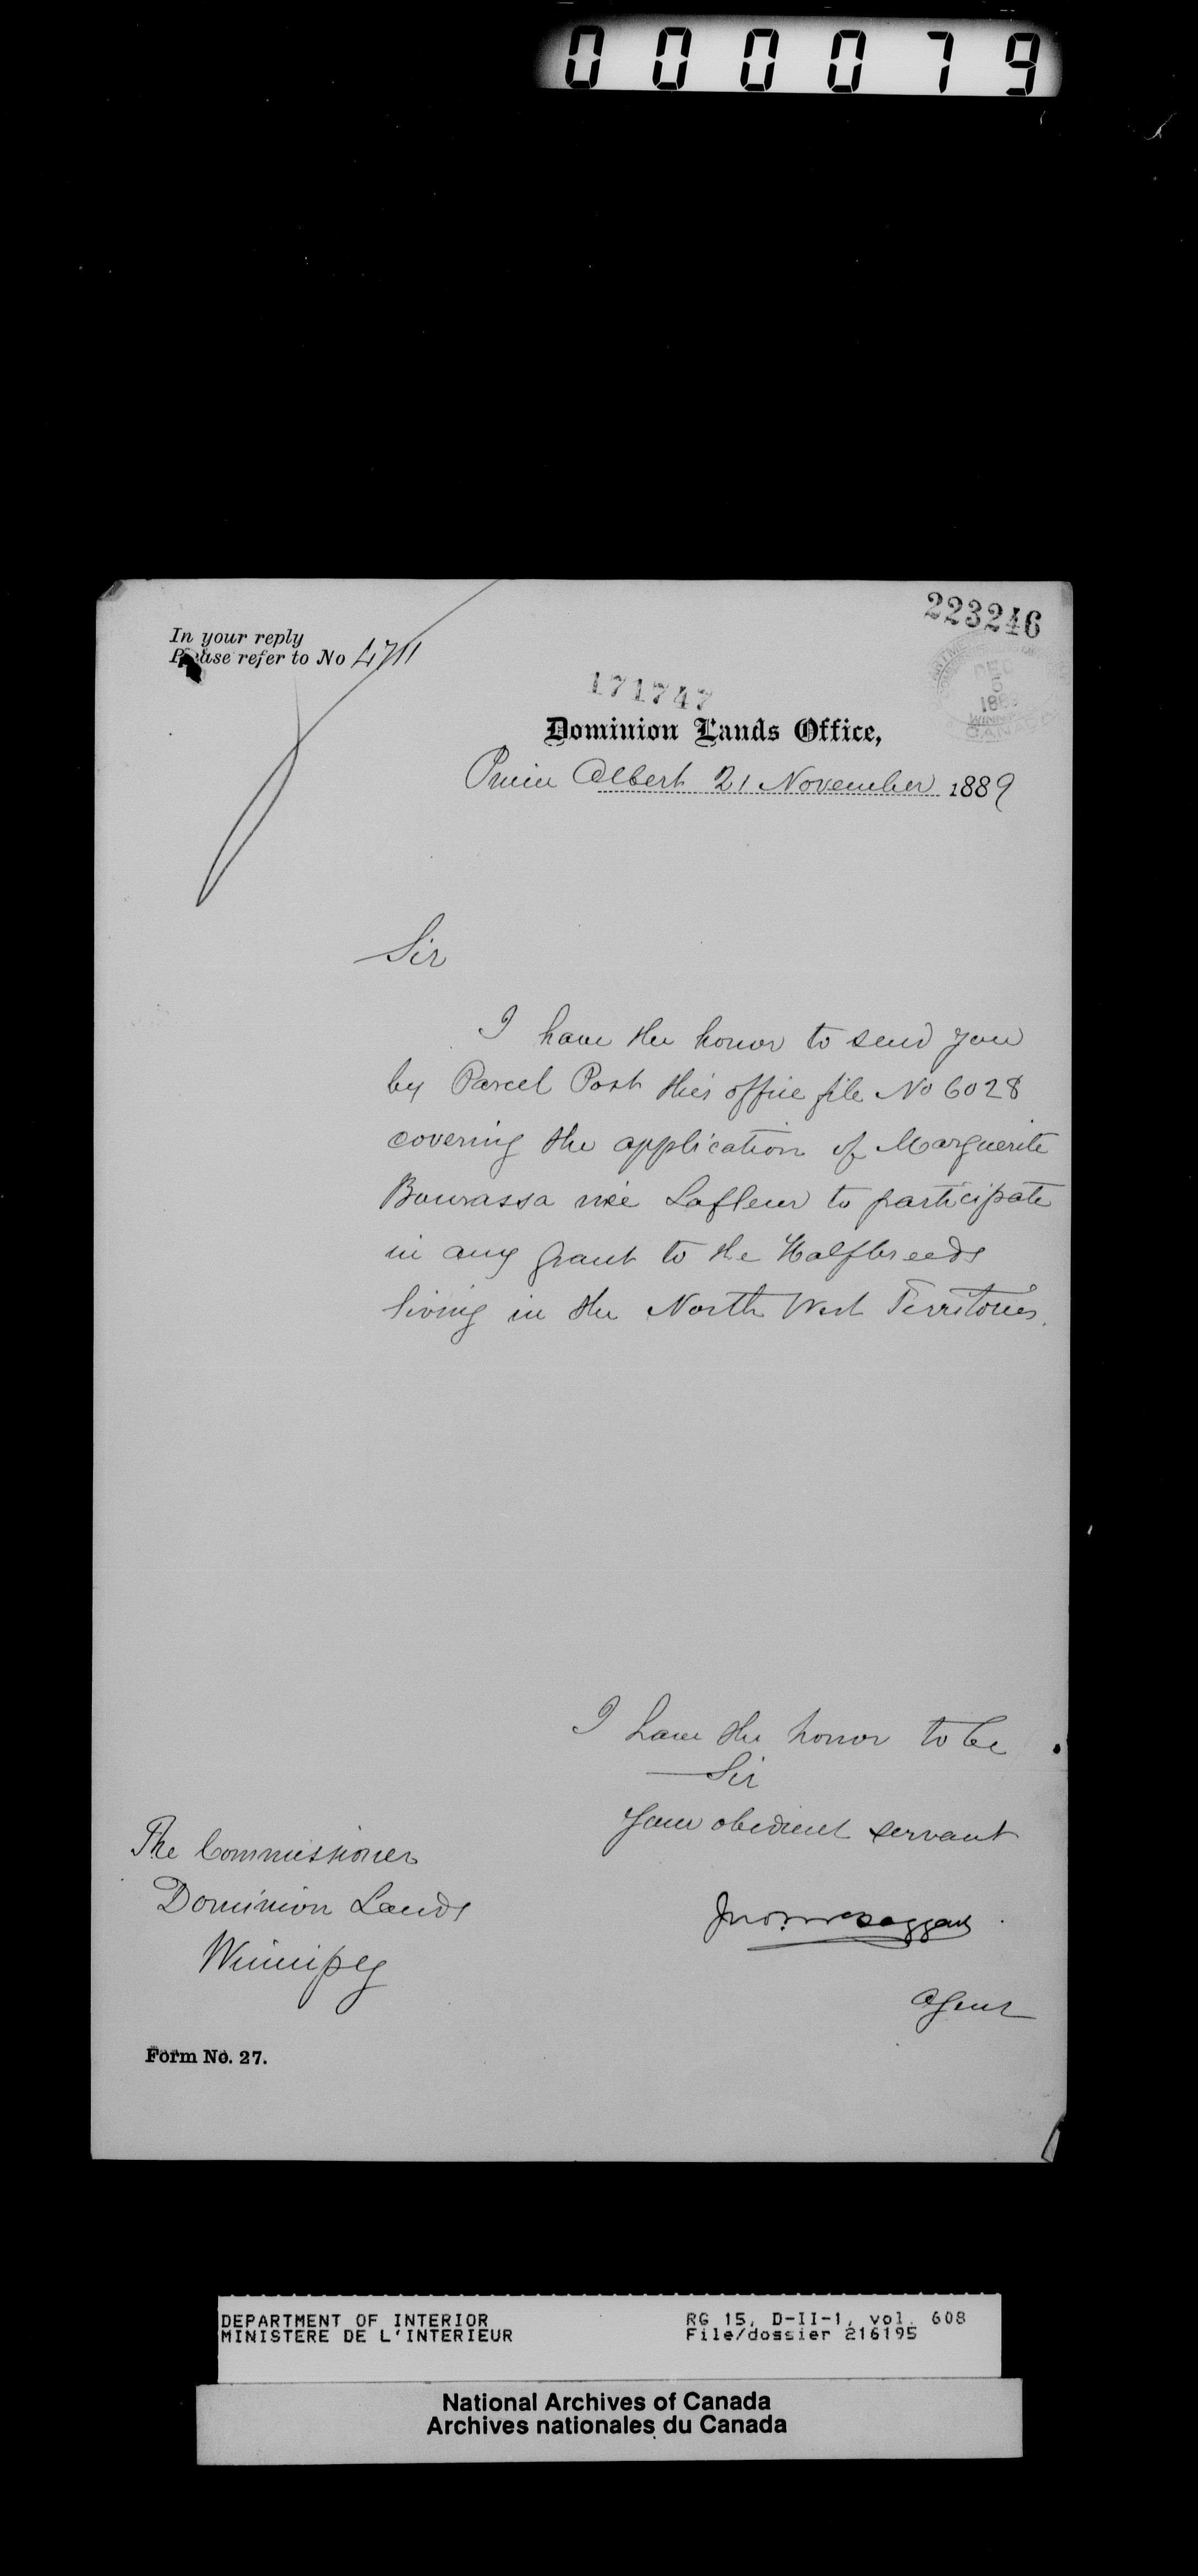 000079
223246
In your reply
Please refer to No 4711
171747
DEC
5
188
WINNI
CANADA
Dominion Lands Office,
Prince Albert 21 November 1889
Sir
I have the honor to send you
by Parcel Post this office file No 6028
covering the application of Marguerite
Bourassa neé Lafleur to participate
in any grant to the Halfbreeds
living in the North West Territories.
I have the honor to be
Sir
Your obedient servant
Agent
The Commissioner
Dominion Lands
Winnipeg
Form No. 27.
DEPARTMENT OF INTERIOR
MINISTERE DE L'INTERIEUR
RG 15, D-II-1, vol. 608
File/dossier 216195
National Archives of Canada
Archives nationales du Canada